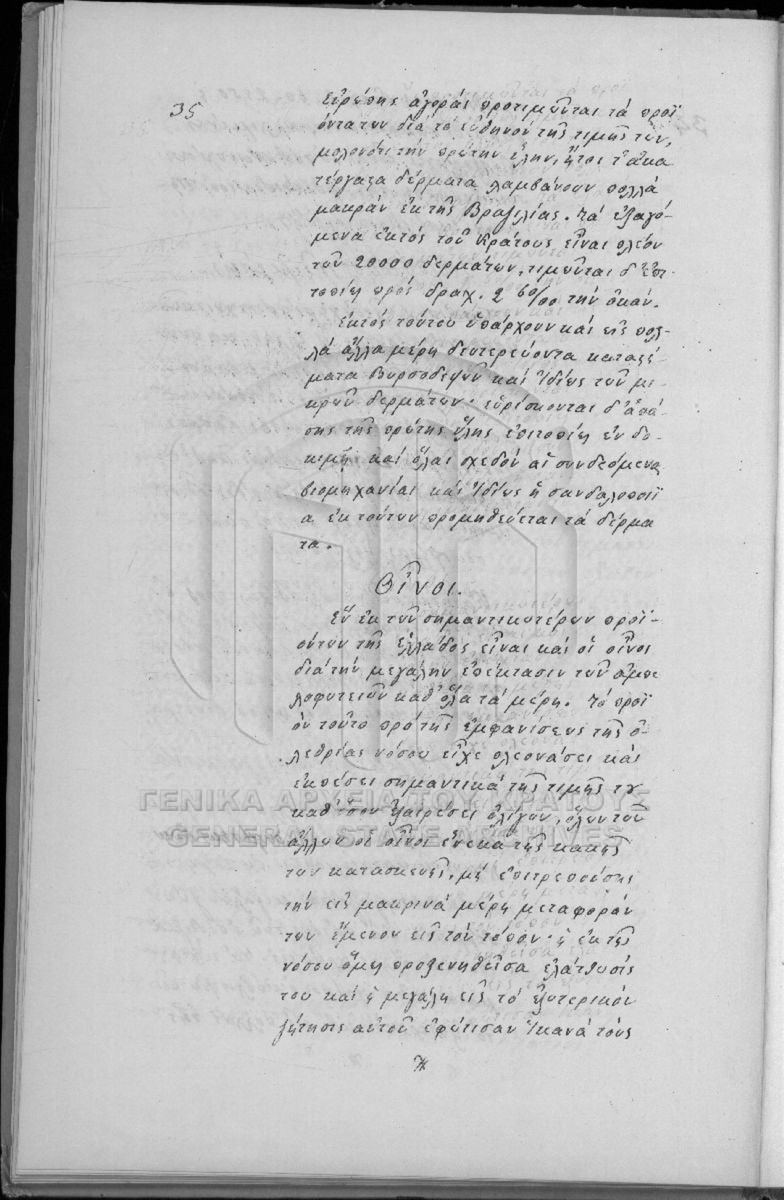 35
Εὐρώπης ἀγοράς προτιμῶνται τά προϊ
όντα των διά τό εὔθηνον τῆς τιμῆς των,
μολονότι τήν πρώτην ὕλην, ἤτοι τ' ἀκα
τέργαστα δέρματα λαμβάνουν πολλά
μακράν ἐκ τῆς Βραζιλίας. Τά ἐξαγό-
μενα ἐκτός τοῦ Κράτους εἶναι πλέον
τῶν 20000 δερμάτων, τιμῶνται δ' ἐπι-
τοπίως πρός δραχ. 2 60/00 τήν ὀκάν.
Ἐκτός τούτου ὑπάρχουν καί εἰς πολ-
λά ἄλλα μέρη δευτερεύοντα καταστή-
ματα Βυρσοδεψῶν καί ἰδίως τῶν μι-
κρῶν δερμάτων· εὑρίσκονται δ' ἁπά-
σης τῆς πρώτης ὕλης ἐπιτοπίως ἐν δο-
κιμῇ καί ὅλαι σχεδόν αἱ συνδεόμεναι
βιομηχανίαι καί ἰδίως ἡ σανδαλοποιΐ
α ἐκ τούτων προμηθεύεται τά δέρμα
τα.
Οἶνοι.
Ἕν ἐκ τῶν σημαντικωτέρων προϊ-
όντων τῆς Ἑλλάδος εἶναι καί οἱ οἶνοι
διά τήν μεγάλην ἐπέκτασιν τῶν ἀμπε
λοφυτειῶν καθ' ὅλα τά μέρη. Τό προϊ
όν τοῦτο πρό τῆς ἐμφανίσεως τῆς ὀ-
λεθρίας νόσου εἶχε πλεονάσει καί
ἐκπέσει σημαντικά τῆς τιμῆς του
καθ' ὅσον ἐξαιρέσει ὀλίγων, ὅλων τῶν
ἄλλων οἱ οἶνοι ἕνεκα τῆς κακῆς
των κατασκευῆς, μή ἐπιτρεπούσης
τήν εἰς μακρινά μέρη μεταφοράν
των ἔμενον εἰς τόν τόπον· ἡ ἐκ τῆς
νόσου ὅμως προξενηθεῖσα ἐλάττωσίς
του καί ἡ μεγάλη εἰς τό ἐξωτερικόν
ζήτησις αὐτοῦ ἐφώτισαν ἱκανά τούς
ΓΕΝΙΚΑ ΑΡΧΕΙΑ ΤΟΥ ΚΡΑΤΟΥΣ
GENERAL STATE ARCHIVES